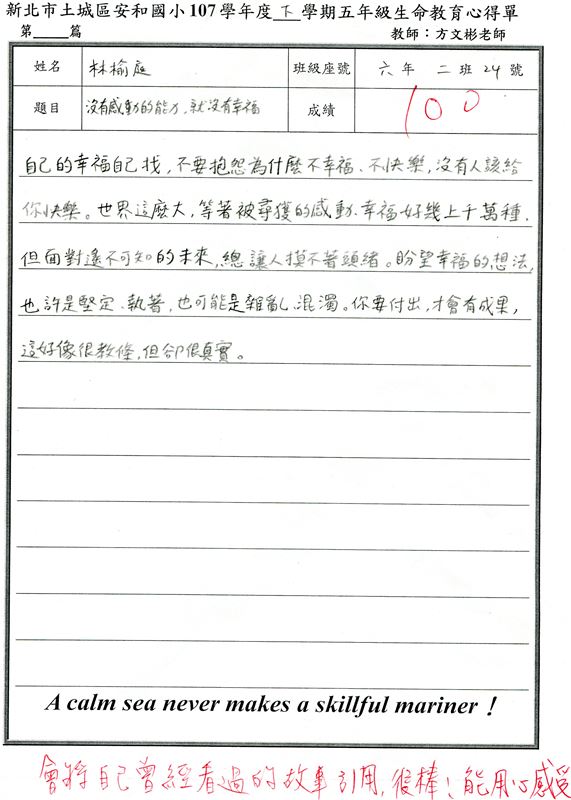 新北市土城區安和國小107學年度下學期五年級生命教育心得單
第____篇 教師：方文彬老師
姓名 林榆庭 班級座號 六年二班24號
題目 沒有感動的能力，就沒有幸福 成績 100
自己的幸福自己找，不要抱怨為什麼不幸福、不快樂，沒有人該給
你快樂。世界這麼大，等著被尋獲的感動、幸福好幾上千萬種，
但面對遙不可知的未來，總讓人摸不著頭緒。盼望幸福的想法，
也許是堅定、執著，也可能是雜亂、混濁。你要付出，才會有成果，
這好像很教條，但卻很真實。
A calm sea never makes a skillful mariner！
會將自己曾經看過的故事引用，很棒！能用心感受